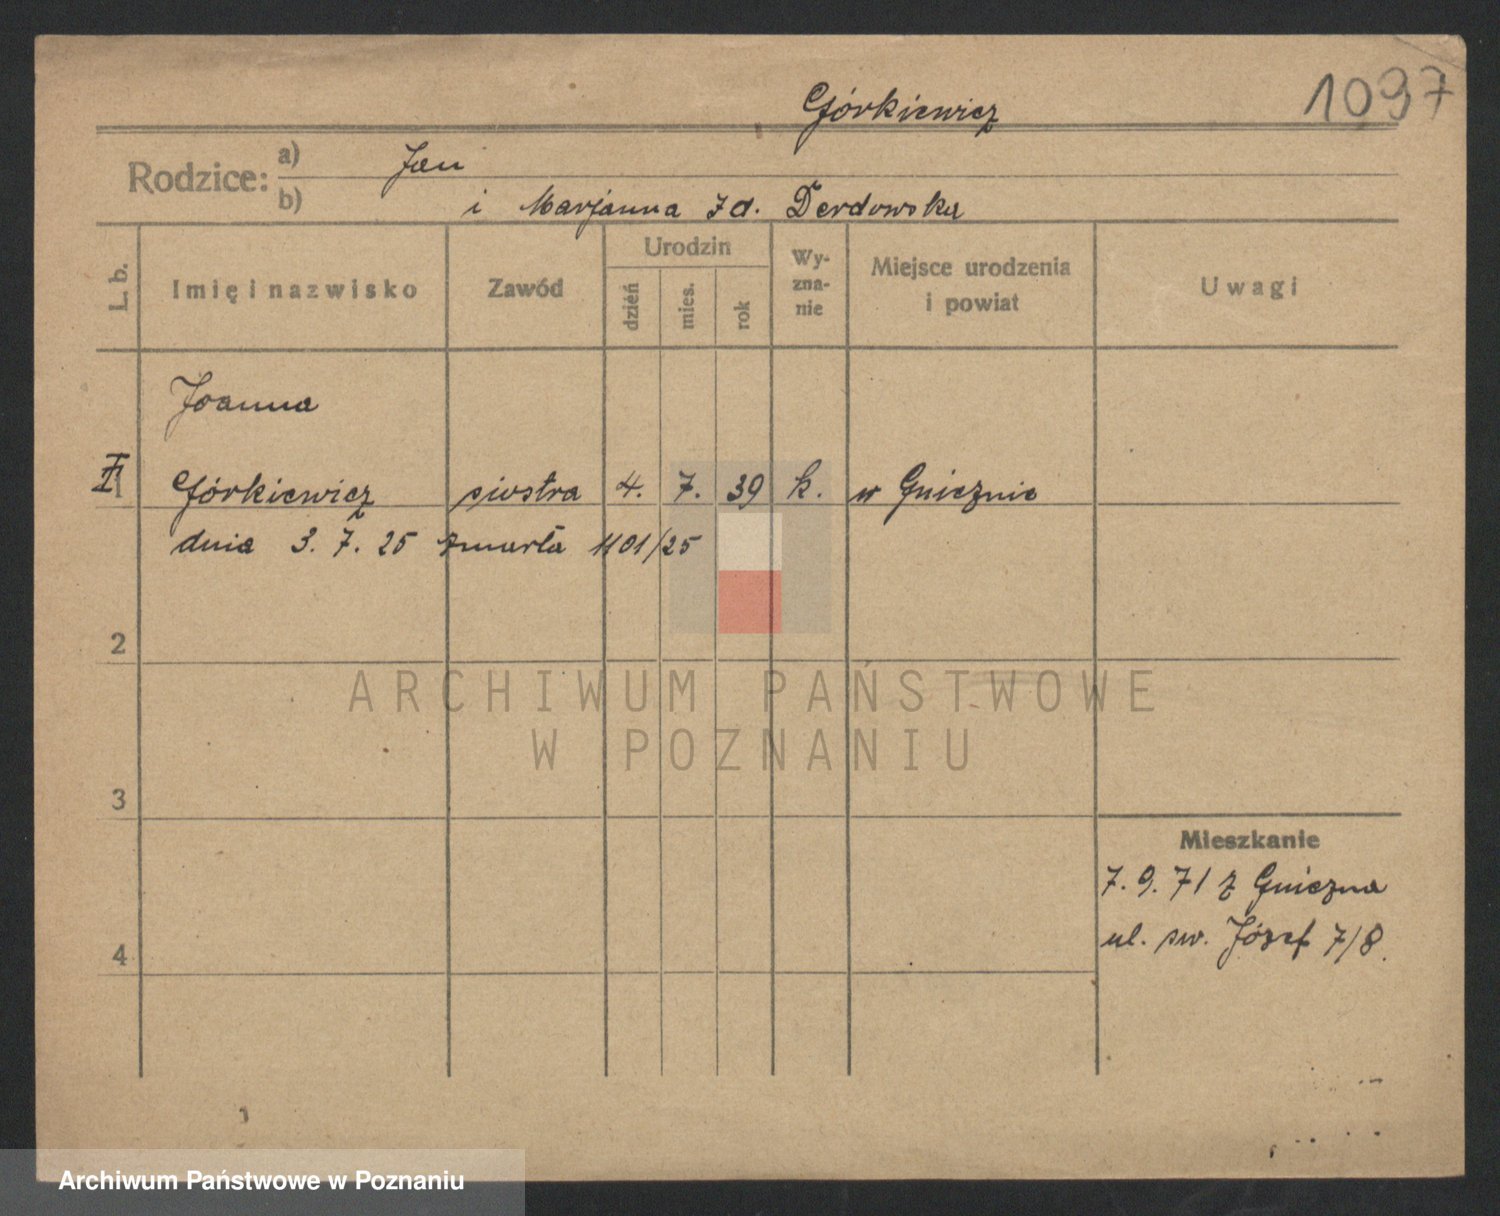 1097
Górkiewicz
Rodzice:
a) Jan
b) i Marjanna zd. Derdowska
L. b.
Imię i nazwisko
Zawód
Urodzin
dzień
mies.
rok
Wy-
zna-
nie
Miejsce urodzenia
i powiat
Uwagi
Joanna
Górkiewicz siostra 4. 7. 39 k. w Gnieznie
dnia 3. 7. 25 zmarła 1101/25
2
ARCHIWUM PAŃSTWOWE
W POZNANIU
3
Mieszkanie
7. 9. 71 z Gniezna
ul. sw. Józef 7/8.
4
Archiwum Państwowe w Poznaniu